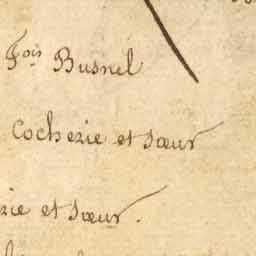 Fois Busnel
Cocherie et sœur
rie et sœur.